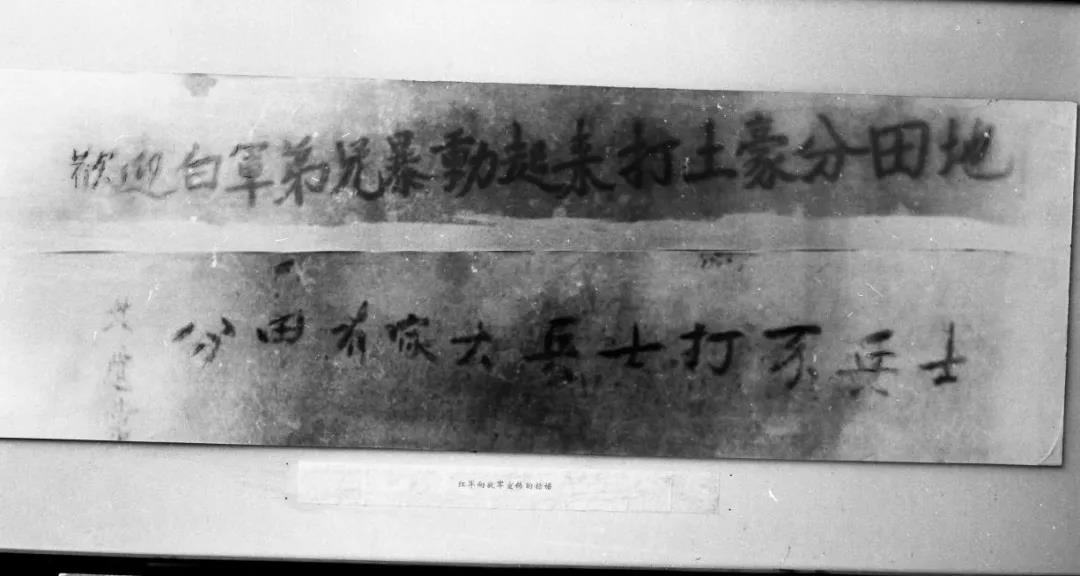 歡迎白軍弟兄暴動起来打土豪分田地
士兵不打士兵大家有田分
共產黨
红军向敌军宣传的标语